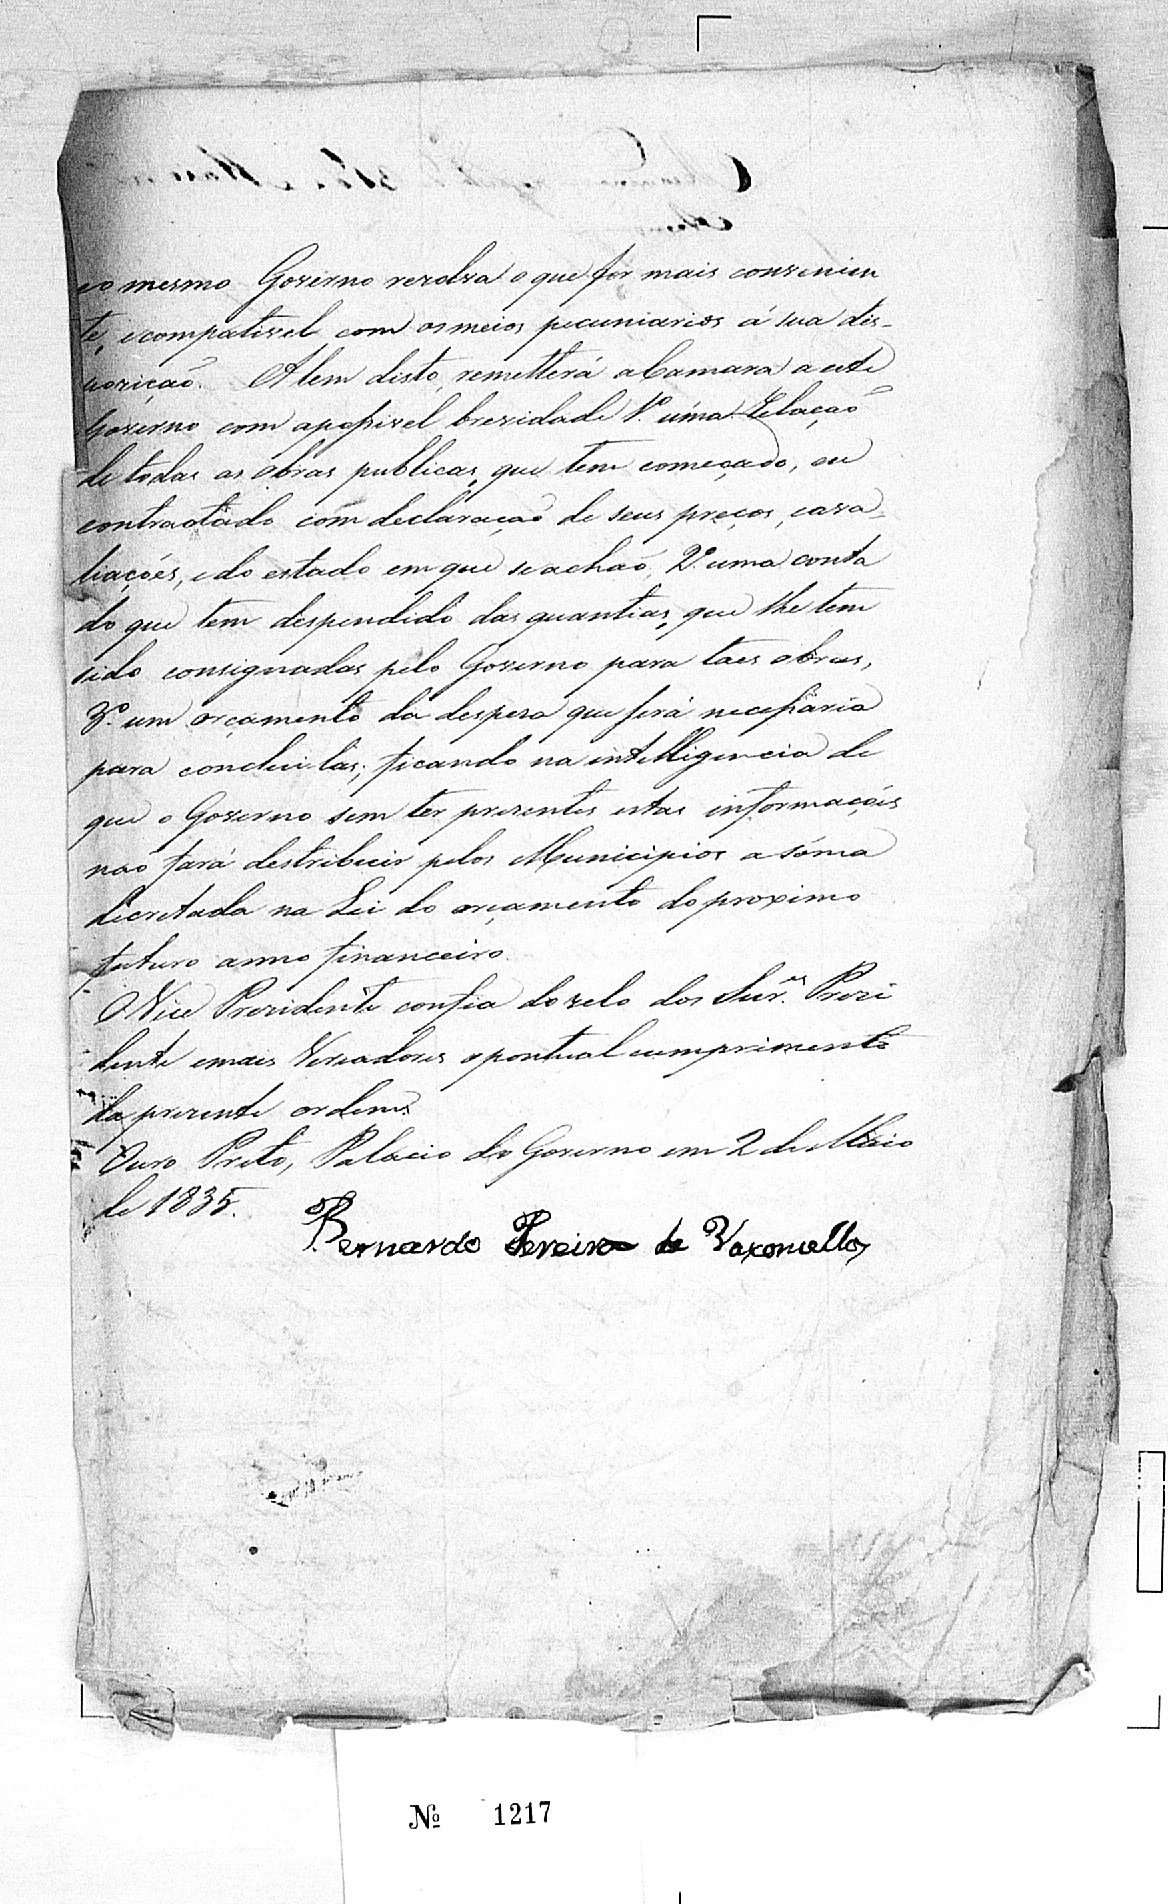 e o mesmo Governo resolva o que for mais convenien
te, e compativel com os meios pecuniarios á sua dis-
posição. Alem disto remetterá a Camara a este
Governo com a possivel brevidade 1.º uma relação
de todas as obras publicas, que tem começado, ou
contractado com declaração de seus preços, e ava-
liações, e do estado em que se achaõ, 2.º uma conta
do que tem despendido das quantias, que lhe tem
sido consignadas pelo Governo para taes obras,
3.º um orçamento da despesa que será necessaria
para concluilas; ficando na intelligencia de
que o Governo sem ter presentes estas informações
nao fará destribuir pelos Municipios a sóma
decretada na Lei do orçamento do proximo
futuro anno financeiro.
O Vice Presidente confia do zelo dos Snr.es Prezi
dente e mais Vereadores o pontual cumprimento
da prezente ordem.
Ouro Preto, Palacio do Governo em 2 de Maio
de 1835.
Bernardo Pereira de Vasconcellos
Nº 1217